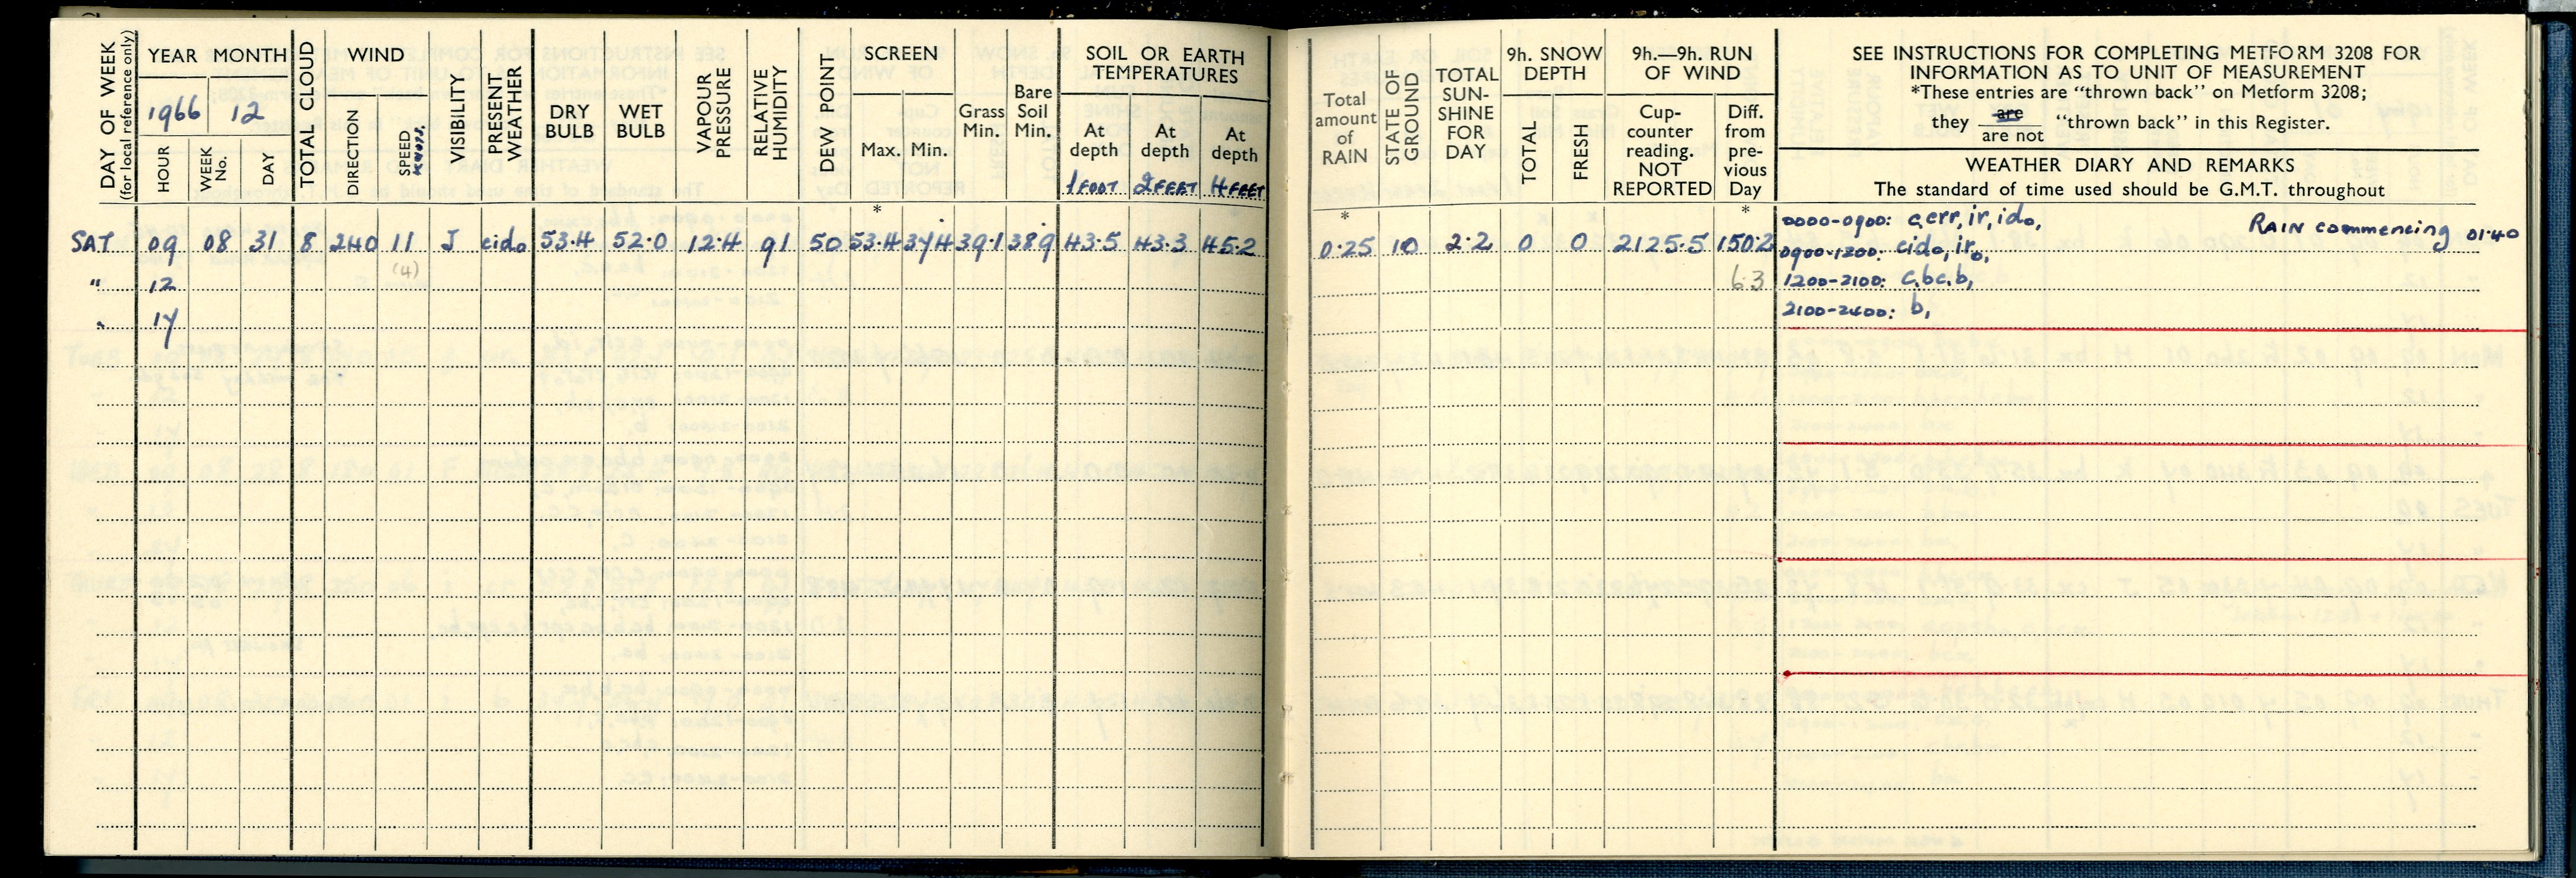 DAY OF WEEK
(for local reference only)
YEAR MONTH
1966 12
HOUR
WEEK No.
DAY
TOTAL CLOUD
WIND
DIRECTION
SPEED KNOTS.
VISIBILITY
PRESENT WEATHER
DRY BULB
WET BULB
VAPOUR PRESSURE
RELATIVE HUMIDITY
DEW POINT
SCREEN
Max. Min.
Grass Min.
Bare Soil Min.
SOIL OR EARTH TEMPERATURES
At depth 1 FOOT
At depth 2 FEET
At depth 4 FEET
Total amount of RAIN
STATE OF GROUND
TOTAL SUN-SHINE FOR DAY
9h. SNOW DEPTH
TOTAL
FRESH
9h.—9h. RUN OF WIND
Cup-counter reading. NOT REPORTED
Diff. from pre-vious Day
SEE INSTRUCTIONS FOR COMPLETING METFORM 3208 FOR
INFORMATION AS TO UNIT OF MEASUREMENT
*These entries are “thrown back” on Metform 3208;
they are / are not “thrown back” in this Register.
WEATHER DIARY AND REMARKS
The standard of time used should be G.M.T. throughout
* * *
SAT 09 08 31 8 240 11 J cido 53.4 52.0 12.4 91 50 53.4 37.4 39.1 38.9 43.5 43.3 45.2 0.25 10 2.2 0 0 2125.5 150.2
(4)
" 12 63
" 17
0000-0900: c,err,ir,ido, RAIN commencing 01.40
0900-1200: cido, iro,
1200-2100: c,bc,b,
2100-2400: b,